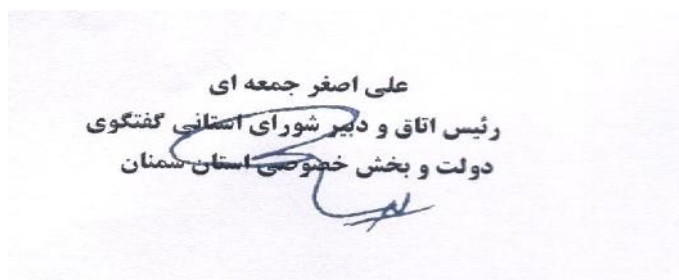 علی اصغر جمعه ای
رئیس اتاق و دبیر شورای استانی گفتگوی
دولت و بخش خصوصی استان سمنان